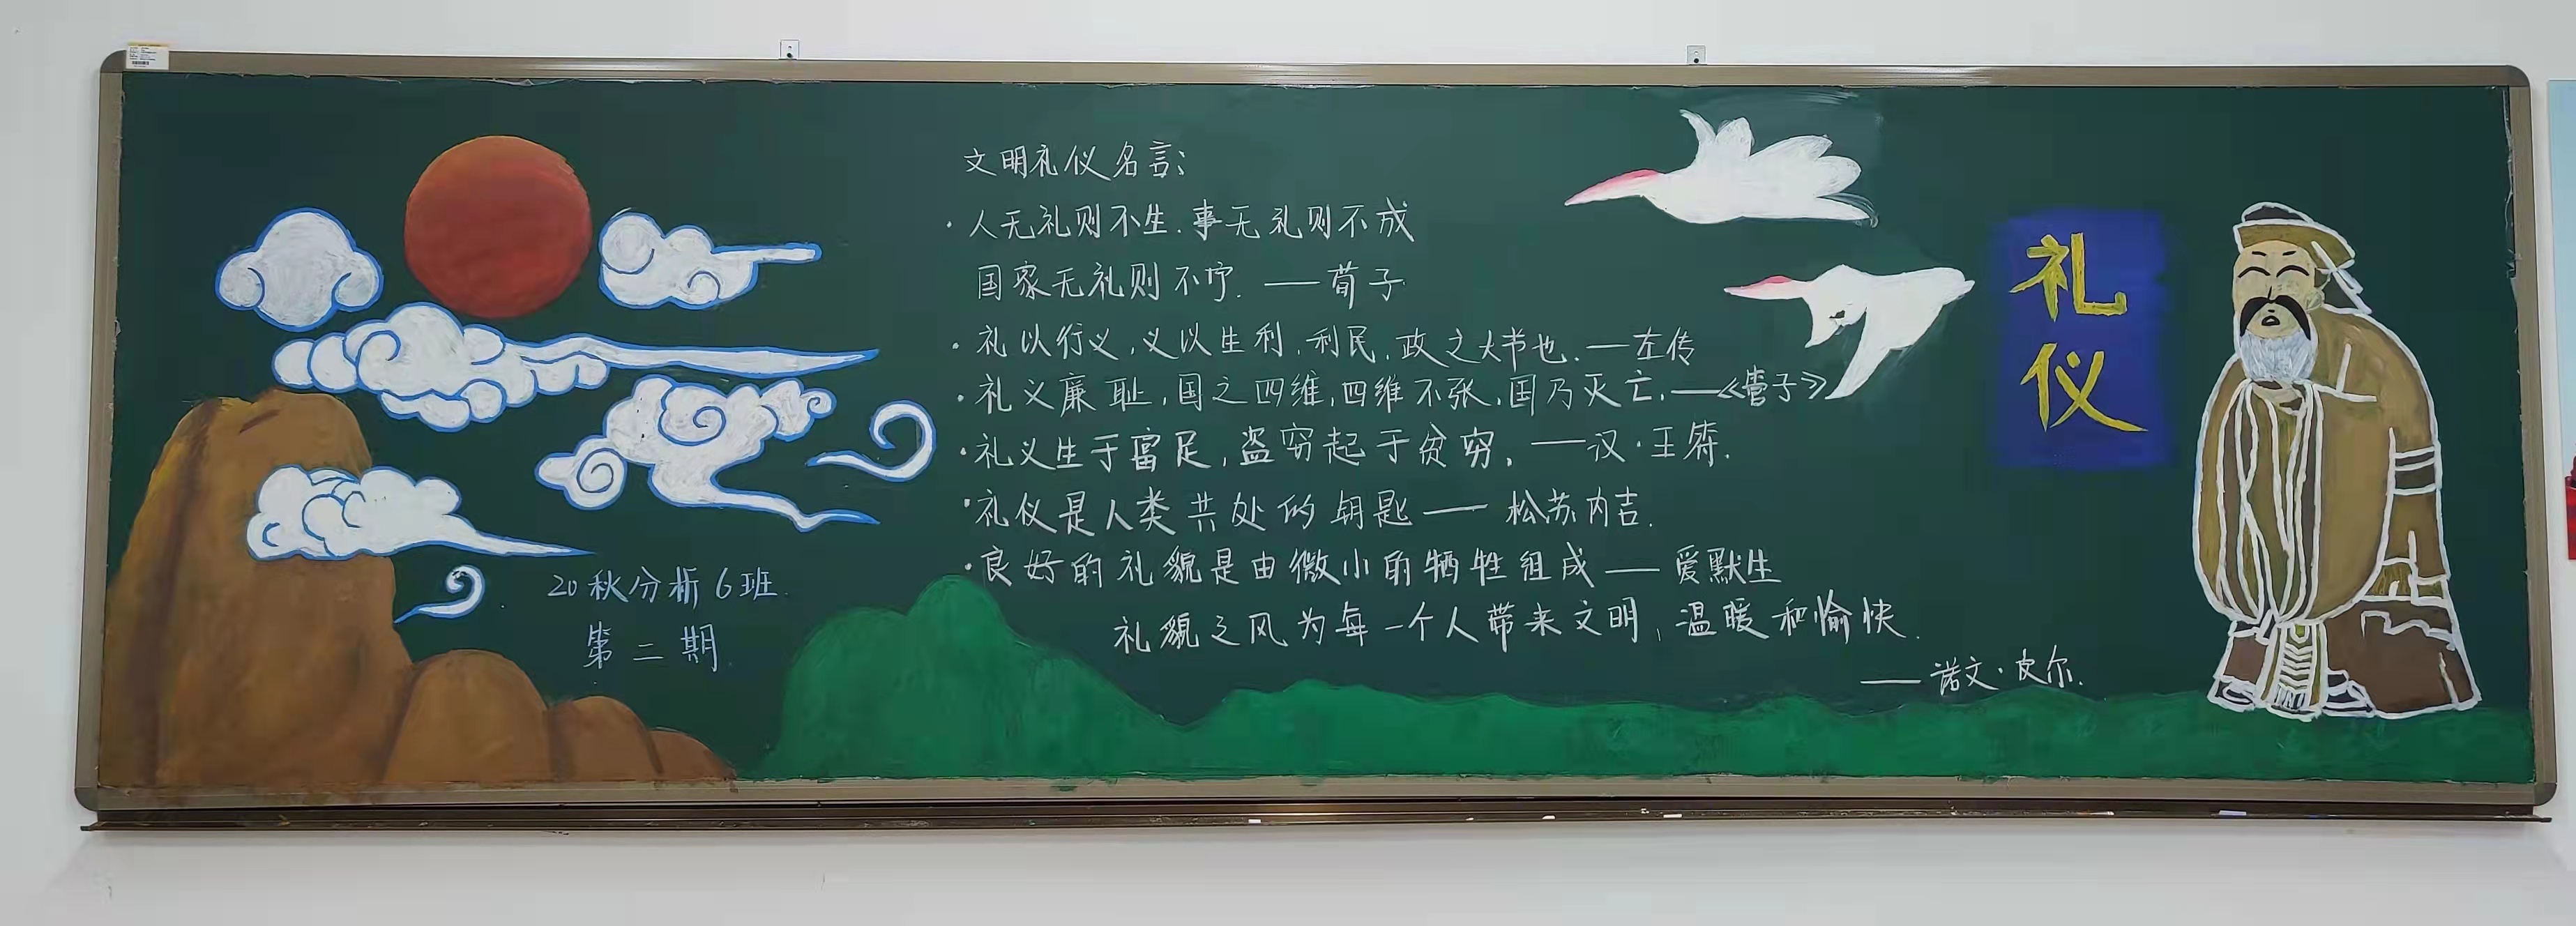 文明礼仪名言：
·人无礼则不生.事无礼则不成
国家无礼则不宁.——荀子
·礼以行义,义以生利,利民,政之大节也.—左传
·礼义廉耻,国之四维,四维不张,国乃灭亡.——《管子》
·礼义生于富足,盗窃起于贫穷。——汉·王符.
·礼仪是人类共处的钥匙——松苏内吉.
·良好的礼貌是由微小的牺牲组成——爱默生
礼貌之风为每一个人带来文明,温暖和愉快.
——诺文·皮尔.
礼仪
20秋分析6班.
第二期.